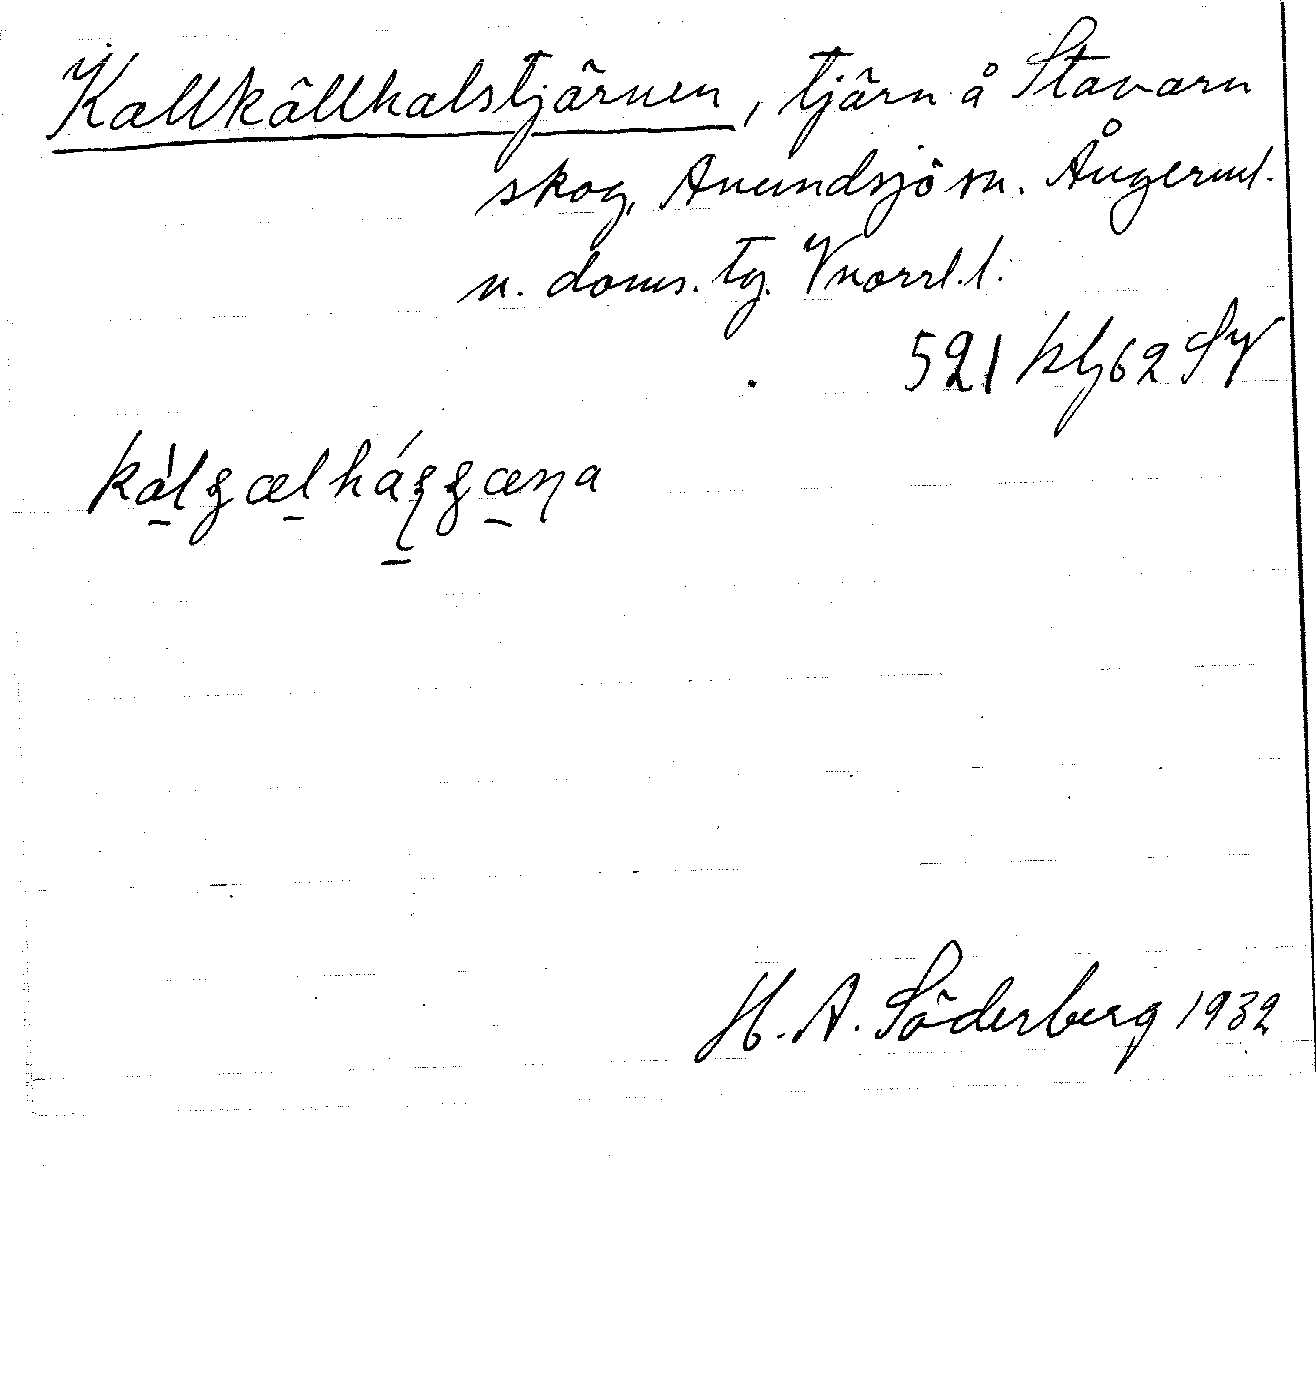 Kallkällhalstjärnen, tjärn å Stavarn
skog, Anundsjö sn. Ångerml.
n. doms. tg. Vnorrl.l.
521 kbg 62 SV
H. A. Söderberg 1932